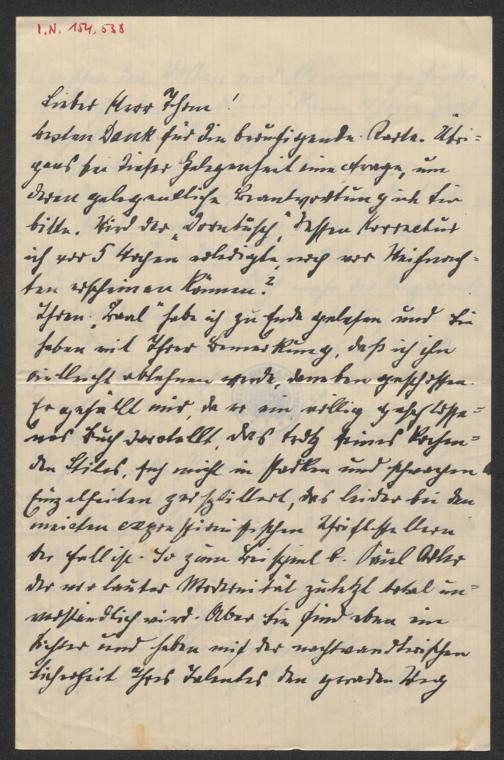 I.N. 154.538
Lieber Herr Thom!
besten Dank für die beruhigende Karte. Übri=
gens bei dieser Gelegenheit eine Frage, um
deren gelegentliche Beantwortung ich Sie
bitte. Wird der „Dornbusch“, dessen Korrektur
ich vor 5 Wochen erledigte, noch vor Weihnach=
ten erscheinen können?
Ihren „Baal“ habe ich zu Ende gelesen und Sie
haben mit Ihrer Bemerkung, daß ich ihn
vielleicht ablehnen werde, daneben geschossen.
Er gefällt mir, da er ein völlig geschlosse=
nes Buch darstellt, das trotz seines
den Stiles, sich nicht in starken und schwachen
Einzelheiten zersplittert, das leider bei den
meisten expressionistischen Schriftstellern
der Fall ist. So zum Beispiel b. Paul Adler
der vor lauter Modernität zuletzt total un=
verständlich wird. Aber Sie sind eben ein
Dichter und haben mit der nachtwandlerischen
Sicherheit Ihres Talentes den geraden Weg